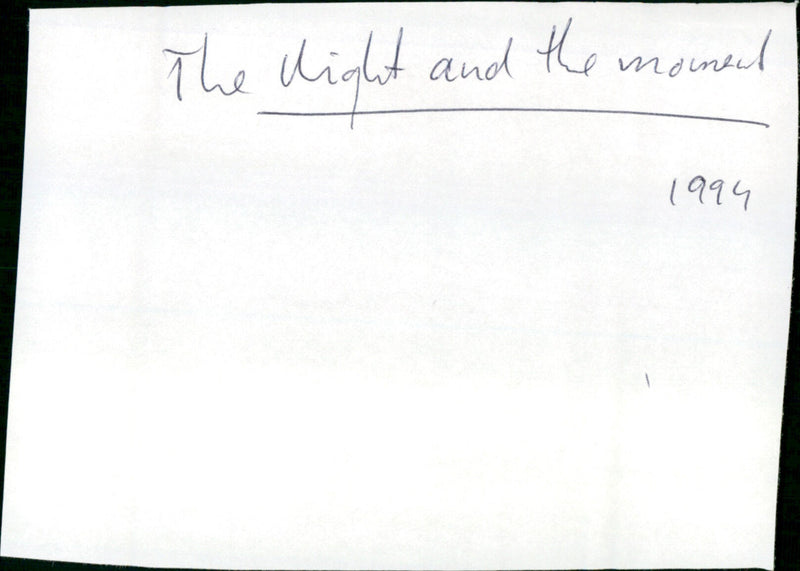 The Night and the moment
1994